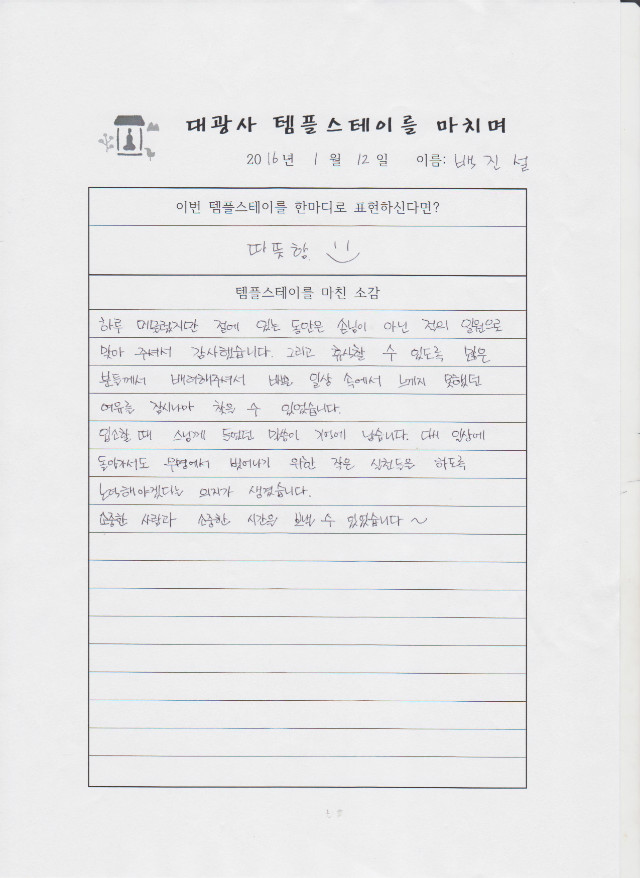 대광사 템플스테이를 마치며
2016년 1월 12일 이름: 백진설
이번 템플스테이를 한마디로 표현하신다면?
따뜻함.
템플스테이를 마친 소감
하루 머물렀지만 절에 있는 동안은 손님이 아닌 절의 일원으로
맞아 주셔서 감사했습니다. 그리고 휴식할 수 있도록 많은
분들께서 배려해주셔서 바쁜 일상 속에서 느끼지 못했던
여유를 잠시나마 찾을 수 있었습니다.
입소할 때 스님께 들었던 말씀이 기억에 남습니다. 다시 일상에
돌아가서도 무명에서 벗어나기 위한 작은 실천들을 하도록
노력해야겠다는 의지가 생겼습니다.
소중한 사람과 소중한 시간을 보낼 수 있었습니다~